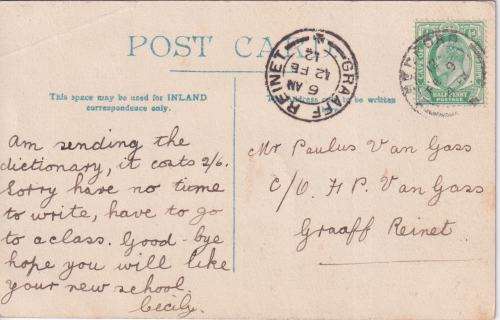 POST CA
GRAAFF REINET
6 AM
12 FE
12
This space may be used for INLAND
correspondence only.
to be written
HALF PENNY
POSTAGE
am sending the
dictionary, it costs 2/6.
Sorry have no time
to write, have to go
to a class. Good-bye
hope you will like
your new school.
Cecily.
Mr Paulus Van Gass
C/O. H P. Van Gass
Graaff Reinet.